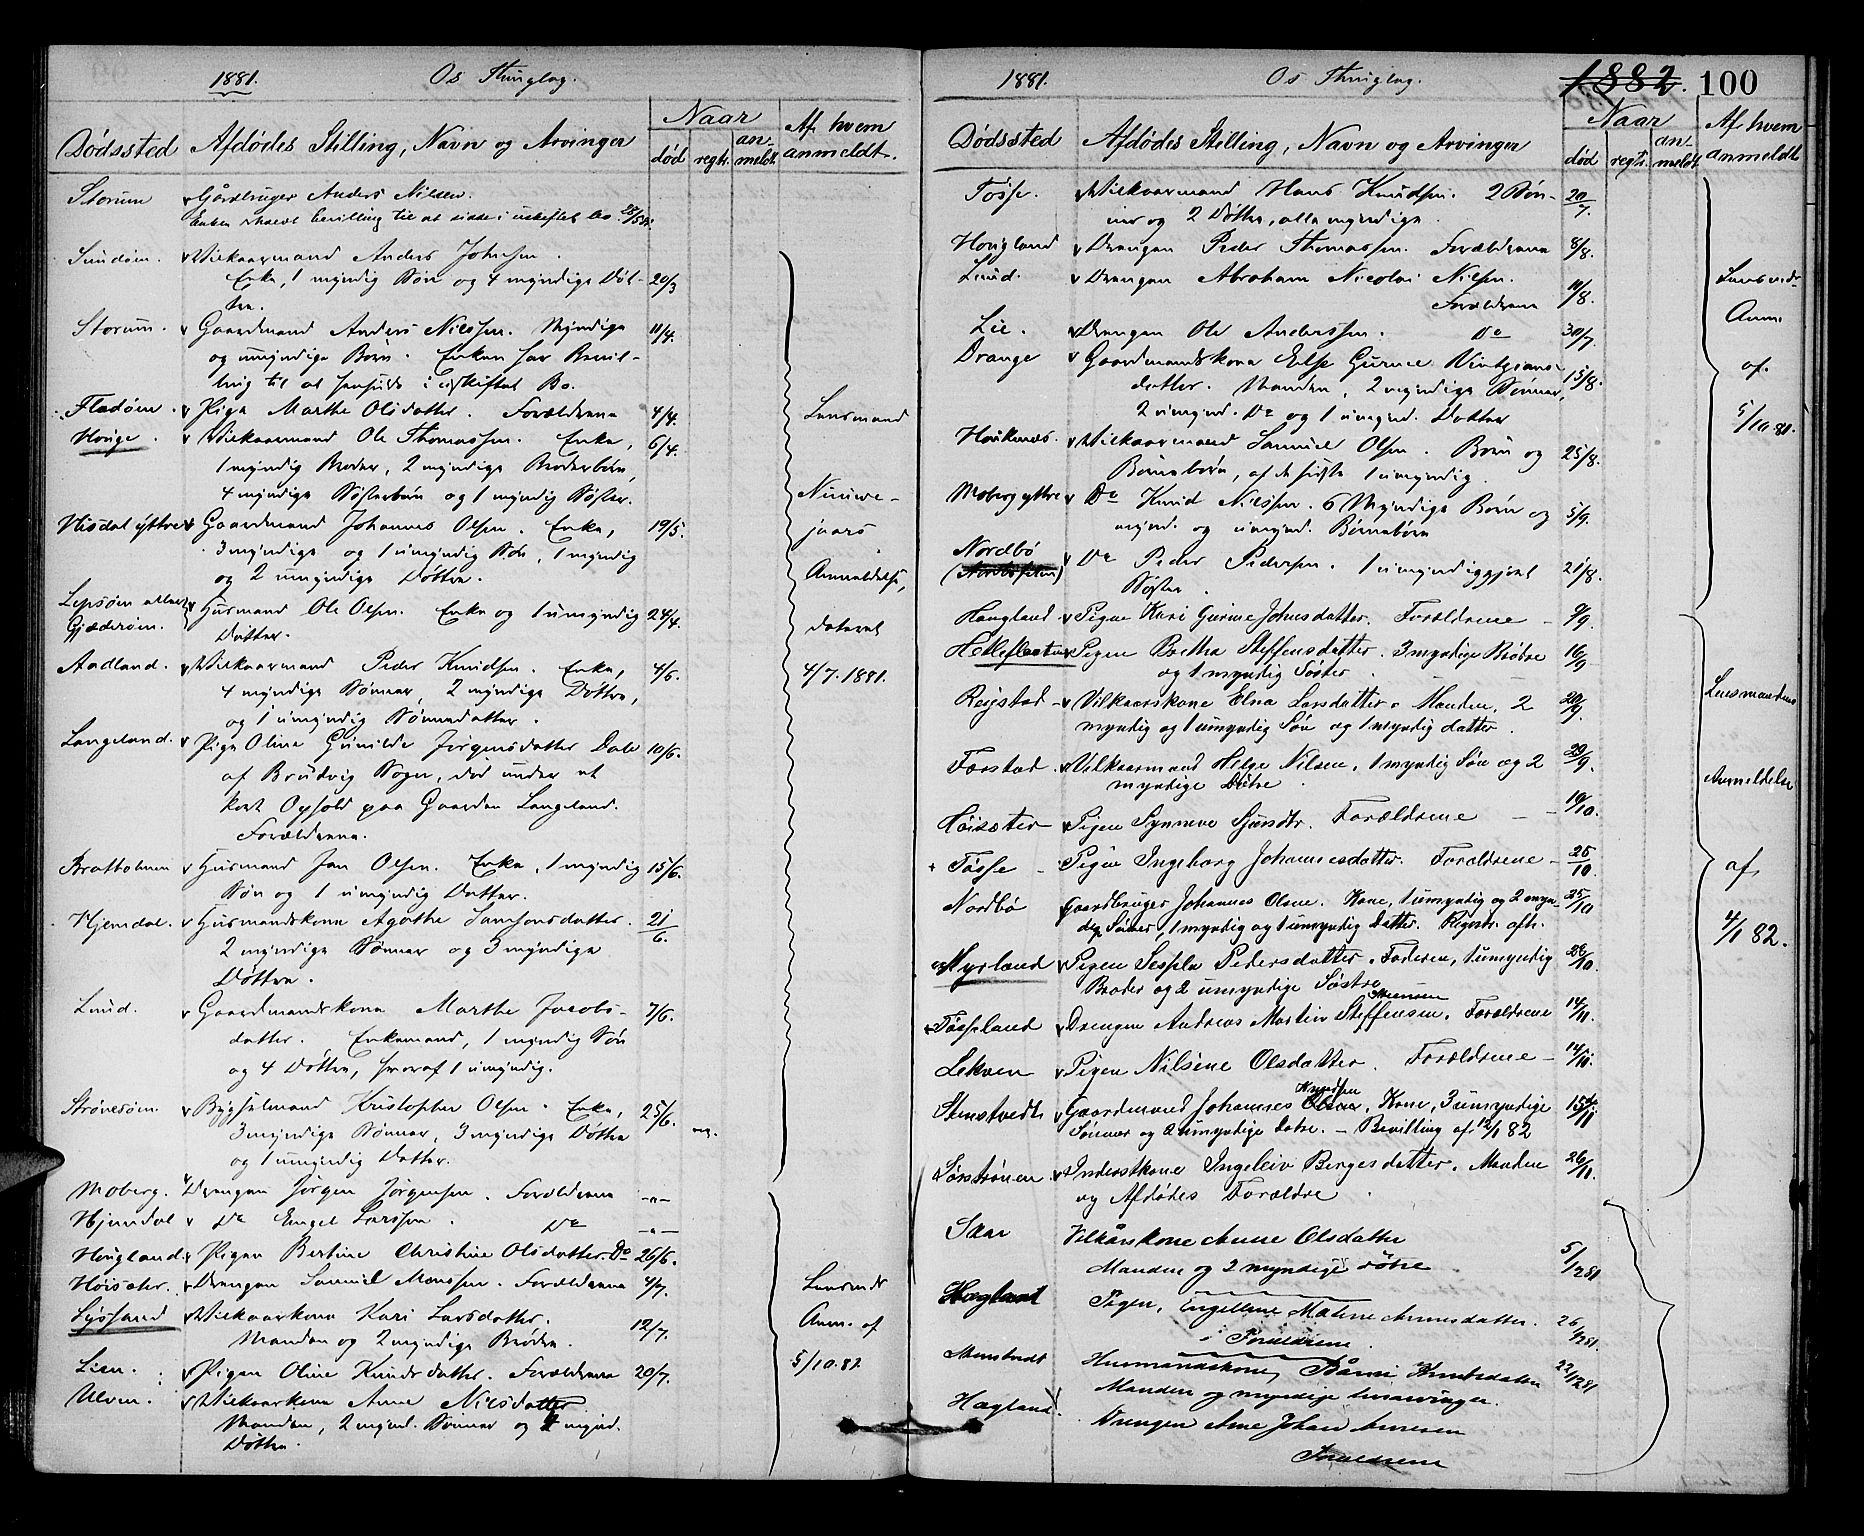 1881. Os Thinglag.
Naar
Dødssted Afdødes Stilling, Navn og Arvinger død regtr. an-meldt Af hvem anmeldt.
Storum Gårdbruger Anders Nilsen.
Enken meddelt bevilling til at sidde i uskiftet bo
Sundøm. Vilkaarmand Anders Johnsen.
Enke, 1 myndig Søn og 4 myndige Døt- 20/3
tre.
Storum. Gaardmand Anders Nilssen. Myndige 11/4.
og umyndige Børn. Enken har Bevil-
ling til at hensidde i uskiftet Bo.
Fladøm. Pige Marthe Olsdatter. Forældrene 4/4.
Houge. Vilkaarmand Ole Thomassen. Enke, 6/4.
1 myndig Broder, 2 myndige Broderbørn,
4 myndige Søsterbørn og 1 myndig Søster.
Hisdal ÿttre Gaardmand Johannes Olsen. Enke, 19/5.
3 myndige og 1 umyndig Søn, 1 myndig
og 2 umyndige Døttre.
Lepsøm
Gjæderøm. Husmand Ole Olsen. Enke og 1 umyndig 24/4.
Datter.
Aadland. Vilkaarmand Peder Knudsen. Enke, 4/6.
4 myndige Sønner, 2 myndige Døttre,
og 1 umyndig Sønnedatter.
Langeland. Pige Oline Gunilde Jørgensdatter Dale 10/6.
af Brudvig Sogn, død under et
kort Ophold paa Gaarden Langeland.
Forældrene.
Bratholmen Husmand Jan Olsen. Enke, 1 myndig 15/6.
Søn og 1 umyndig Datter.
Hjemdal. Husmandskone Agathe Samsonsdatter. 21/6.
2 myndige Sønner og 3 myndige
Døttre.
Lund. Gaardmandskone Marthe Jacobs- 7/6.
datter. Enkemand, 1 myndig Søn
og 4 Døttre, hvoraf 1 umyndig.
Strønesøm. Bygselmand Kristopher Olsen. Enke, 25/6.
3 myndige Sønner, 3 myndige Døttre
og 1 umyndig Datter.
Lensmand
Nieuwe-
jaars
Anmeldelse,
dateret
4/7.1881.
Moberg. Drengen Jørgen Jørgensen. Forældrene -"-
Hjemdal Do Engel Larssen. Do -"-
Hougland. Pigen Bertine Christine Olsdatter. Do 26/6.
Høisæter. Drengen Samuel Monssen. Forældrene 4/7.
Lyssand Vilkaarkone Kari Larsdatter. 12/7.
Manden og 2 myndige Brødre.
Lien. Pigen Oline Knudsdatter. Forældrene 20/7.
Ulven. Vilkaarkone Anne Nilsdatter.
Manden, 2 mynd. Sønner og 4 mynd.
Døttre.
Lensmds
Anm. af
5/10.81.
1881. Os Thinglag. 1882. 100
Naar
Dødssted Afdødes Stilling, Navn og Arvinger død regtr. an-meldt Af hvem anmeldt
Tøsse. Vilkaarmand Hans Knudsen. 2 Søn- 20/7.
ner og 2 Døttre, alle myndige.
Hougland Drengen Peder Thomassen. Forældrene 8/8.
Lund. Drengen Abraham Nicolai Nilsen. 10/8.
Forældrene
Lie. Drengen Ole Anderssen. Do 30/7.
Drange Gaardmandskone Else Gurine
datter. Manden, 2 myndige Sønner, 15/8.
2 umynd. Do og 1 umynd. Datter
Haukenæs. Vilkaarmand Samuel Olsen. Børn og 25/8.
Børnebørn, af de sidste 1 umyndig.
Moberg ÿttre Do Knud Nilssen. 6 Myndige Børn og 5/9.
mynd. og umynd. Børnebørn
Nordbø Do Peder Pedersen. 1 umyndiggjort 21/8.
Søster.
Lensmds
Anm.
af.
5/10.81.
Haugland Pigen Kari Gurine Johnsdatter. Forældrene - 9/9.
Helleflaaten Pigen Bretha Steffensdatter. 3 myndige Brødre 16/9
og 1 myndig Søster.
Røjstad - Vilkaarskone Elna Larsdatter. Manden, 2 20/9.
myndig og 1 umyndig Søn og 1 myndig datter.
Forstad. Vilkaarmand Helge Nilsen, 1 myndig Søn og 2 29/9.
myndige Døtre.
Høisæter Pigen Synneve Sjursdtr. Forældrene - - 19/10.
Tøsse - Pigen Ingeborg Johannesdatter. Forældrene - 25/10
Nordbø Gaardbruger Johannes Olsen. Kone, 1 umyndig og 2 myn- 25/10
dige Sønner, 1 myndig og 1 umyndig Datter. Registr. afh.
Myrland Pigen Sesselia Pedersdatter. Faderen, 1 umyndig 28/10.
Broder og 2 umyndige Søstre
Tøsseland Drengen Andreas Martin Steffensen. Forældrene 14/11.
Lekven Pigen Nilsine Olsdatter. Forældrene - 14/11.
Knudsen
Stenstvedt Gaardmand Johannes Olsen, Kone, 3 umyndige 15/11
Sønner og 2 umyndige Døtre. - Bevilling af 12/1 82
Sørstrønen Inderstkone Ingeleiv Børgesdatter. Manden 26/11.
og Afdødes Forældre.
Lensmandens
Anmeldelse
af
4/1 82.
Skar Vilkårskone Anne Olsdatter
Manden og 2 myndige døtre. 5/1281
Hægland Pigen, Engeline Malene Arnesdatter. 26/1281.
i Forældrene
Stenstvedt Husmandskone, Bårni Knutsdatter 22/1281
Manden og myndige livsarvinger.
Hægland Drengen Arne Johan Arnesen
Forældrene